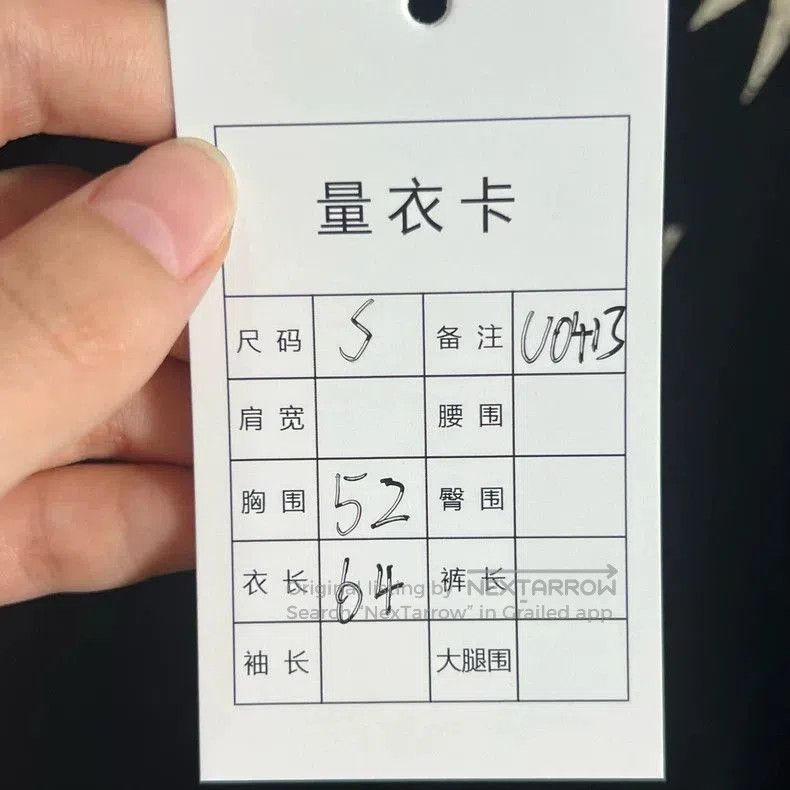 量衣卡
尺码 S 备注 U0413
肩宽 腰围
胸围 52 臀围
衣长 64 裤长
Original listing by NEXTARROW
Search "NexTarrow" in Grailed app
袖长 大腿围